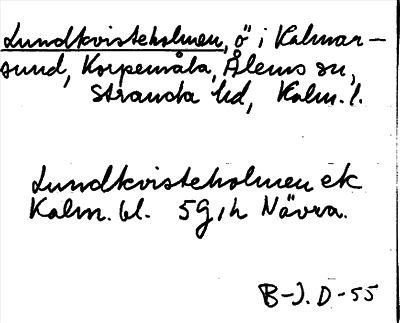 Lundkvisteholmen, ö i Kalmar-
sund, Korpemåla, Ålems sn,
Stranda hd, Kalm. l.
Lundkvisteholmen ek
Kalm. bl. 5 g, h Nävra.
B-J. D-55